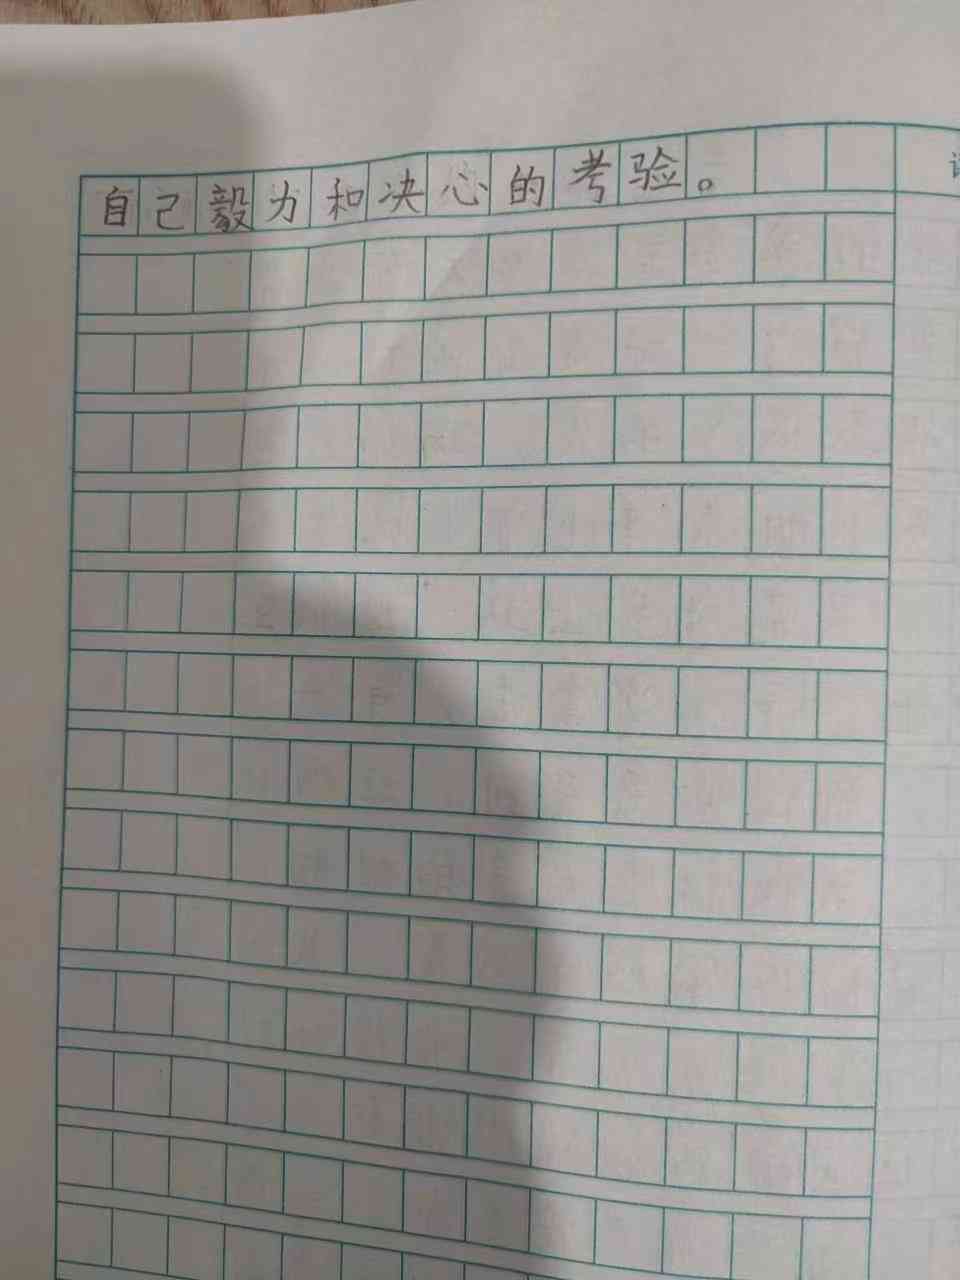 自己毅力和决心的考验。